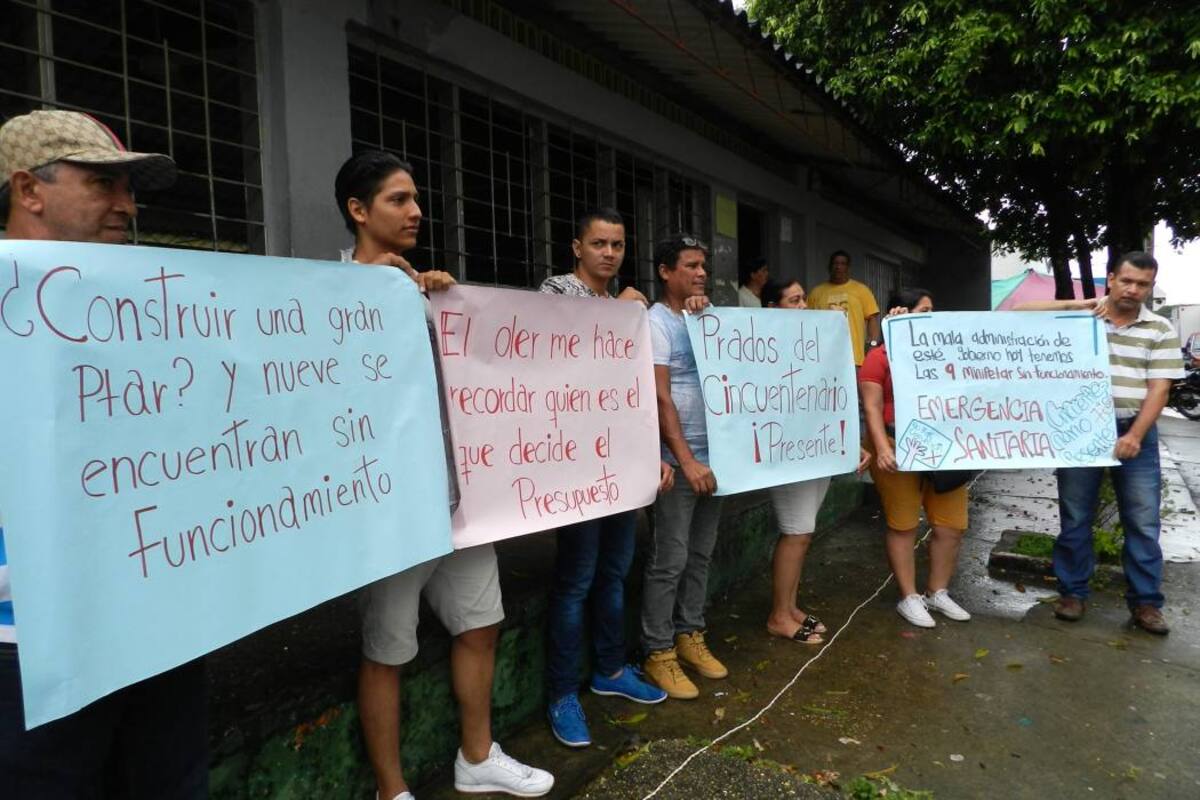 ¿Construir una gran
Ptar? y nueve se
encuentran sin
Funcionamiento
El oler me hace
recordar quien es el
que decide el
Presupuesto
Prados del
Cincuentenario
¡Presente!
La mala administración de
esté gobierno hoy tenemos
Las 9 minipetar sin funcionamiento.
EMERGENCIA
SANITARIA